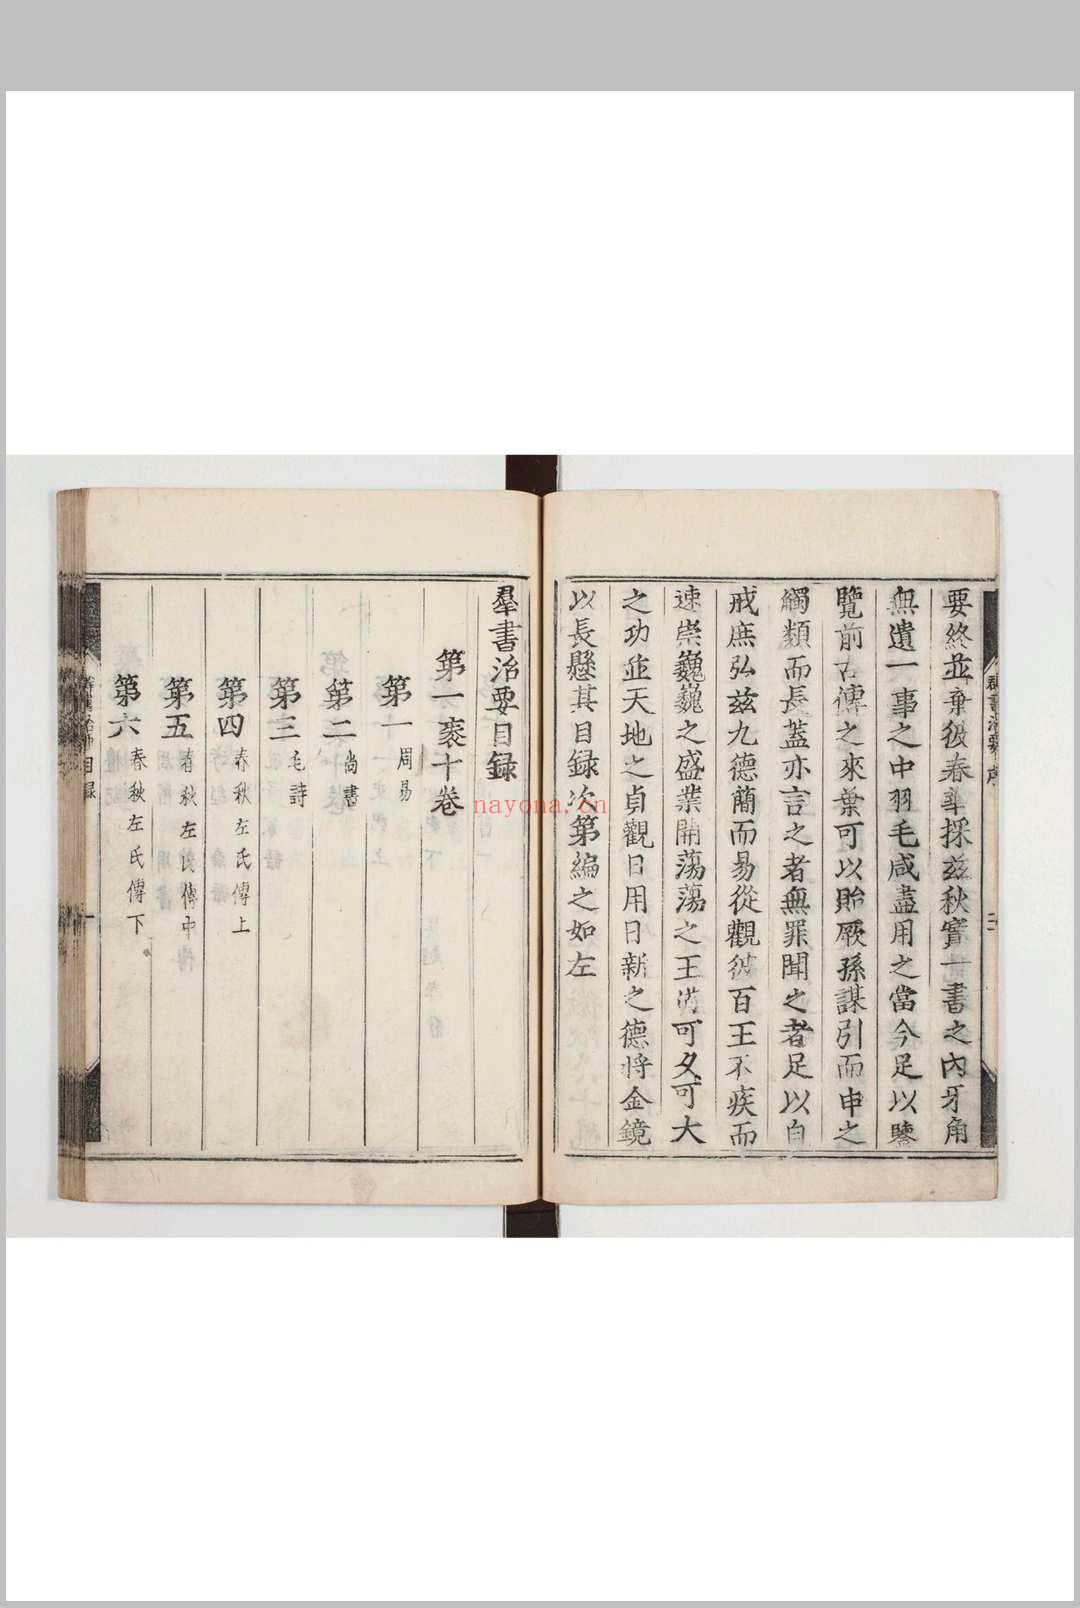 要終並棄彼春華採茲秋實一書之內牙角
無遺一事之中羽毛咸盡用之當今足以鑒
覽前古傳之來葉可以貽厥孫謀引而申之
觸類而長蓋亦言之者無罪聞之者足以自
戒庶弘茲九德簡而易從觀彼百王不疾而
速崇巍巍之盛業開蕩蕩之王道可久可大
之功並天地之貞觀日用日新之德將金鏡
以長懸其目録次第編之如左
羣書治要序
二
羣書治要目録
第一袠十卷
第一 周易
第二 尚書
第三 毛詩
第四 春秋左氏傳上
第五 春秋左氏傳中
第六 春秋左氏傳下
目録
一
nayona.cn